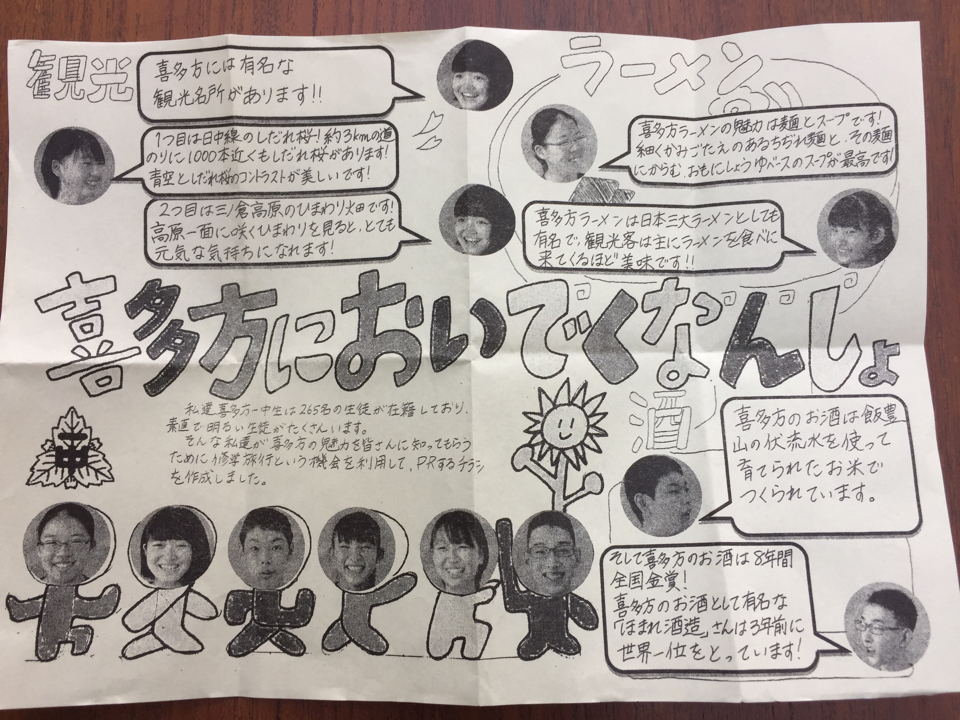 観光
喜多方には有名な
観光名所があります!!
1つ目は日中線のしだれ桜!約3kmの道
のりに1000本近くもしだれ桜があります!
青空としだれ桜のコントラストが美しいです!
2つ目は三ノ倉高原のひまわり畑です!
高原一面に咲くひまわりを見ると、とても
元気な気持ちになれます!
ラーメン
喜多方ラーメンの魅力は麺とスープです!
細くかみごたえのあるちぢれ麺と、その麺
にからむ、おもにしょうゆベースのスープが最高です!
喜多方ラーメンは日本三大ラーメンとしても
有名で、観光客は主にラーメンを食べに
来てくるほど美味です!!
喜多方においでくなんしょ
私達喜多方一中生は265名の生徒が在籍しており、
素直で明るい生徒がたくさんいます。
そんな私達が喜多方の魅力を皆さんに知ってもらう
ために修学旅行という機会を利用して、PRするチラシ
を作成しました。
酒
喜多方のお酒は飯豊
山の伏流水を使って
育てられたお米で
つくられています。
そして喜多方のお酒は8年間
全国金賞!
喜多方のお酒として有名な
「ほまれ酒造」さんは3年前に
世界一位をとっています!